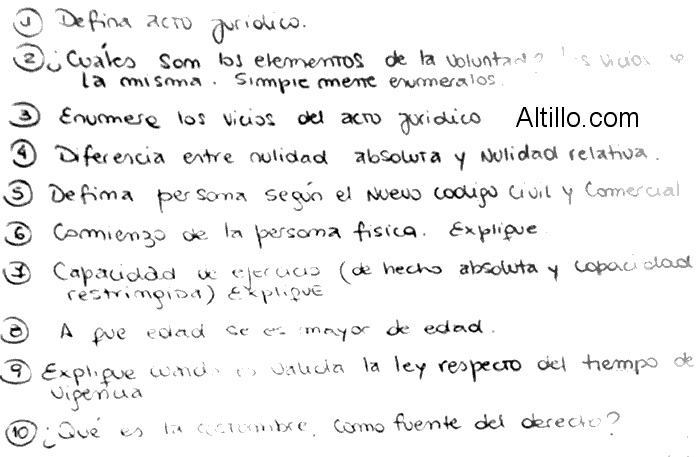 1 Defina acto jurídico.
2 ¿Cuáles son los elementos de la voluntad? los vicios de
la misma. Simple mente enumeralos.
3 Enumere los vicios del acto jurídico Altillo.com
4 Diferencia entre nulidad absoluta y Nulidad relativa.
5 Defina persona según el Nuevo codigo Civil y Comercial
6 Comienzo de la persona fisica. Explique
7 Capacidad de ejercicio (de hecho absoluta y capacidad
restringida) Explique
8 A que edad se es mayor de edad.
9 Explique cuando es valida la ley respecto del tiempo de
vigencia
10 ¿Qué es la costumbre, como fuente del derecho?